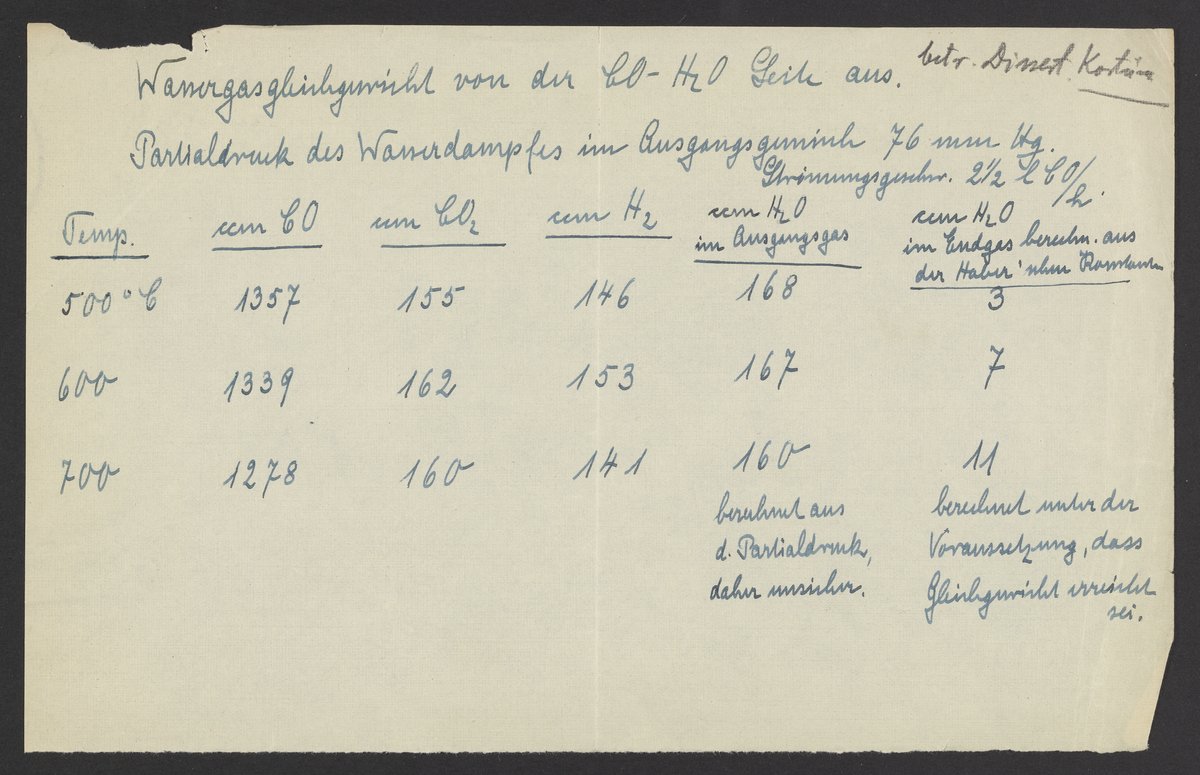 betr. Dissert. Kortüm
Wassergasgleichgewicht von der CO-H₂O Seite aus.
Partialdruck des Wasserdampfes im Ausgangsgemisch 76 mm Hg.
Strömungsgeschw. 2½ l CO/h.
Temp. ccm CO ccm CO₂ ccm H₂ ccm H₂O im Ausgangsgas ccm H₂O im Endgas berechn. aus der Haber'schen Konstanten
500°C 1357 155 146 168 3
600 1339 162 153 167 7
700 1278 160 141 160 11
berechnet aus
d. Partialdruck,
daher unsicher.
berechnet unter der
Voraussetzung, dass
Gleichgewicht erreicht
sei.